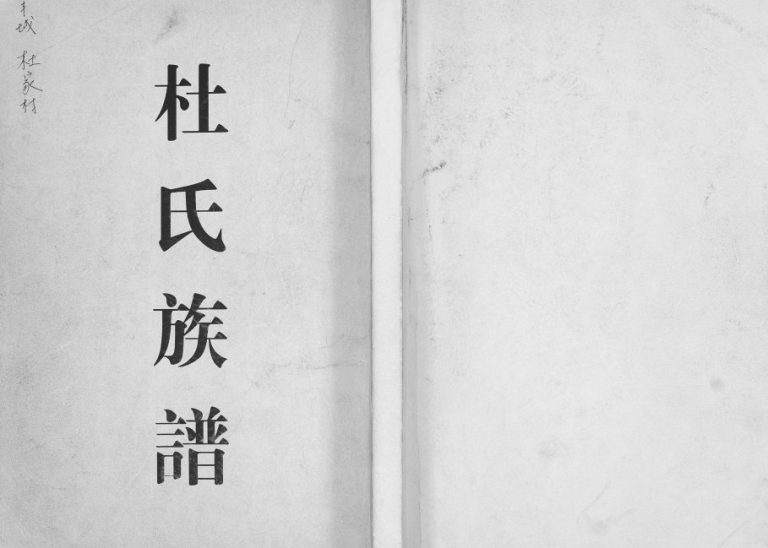 杜氏族譜
城 杜家村